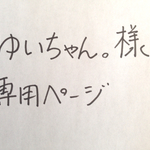 ゆいちゃん。様
専用ページ